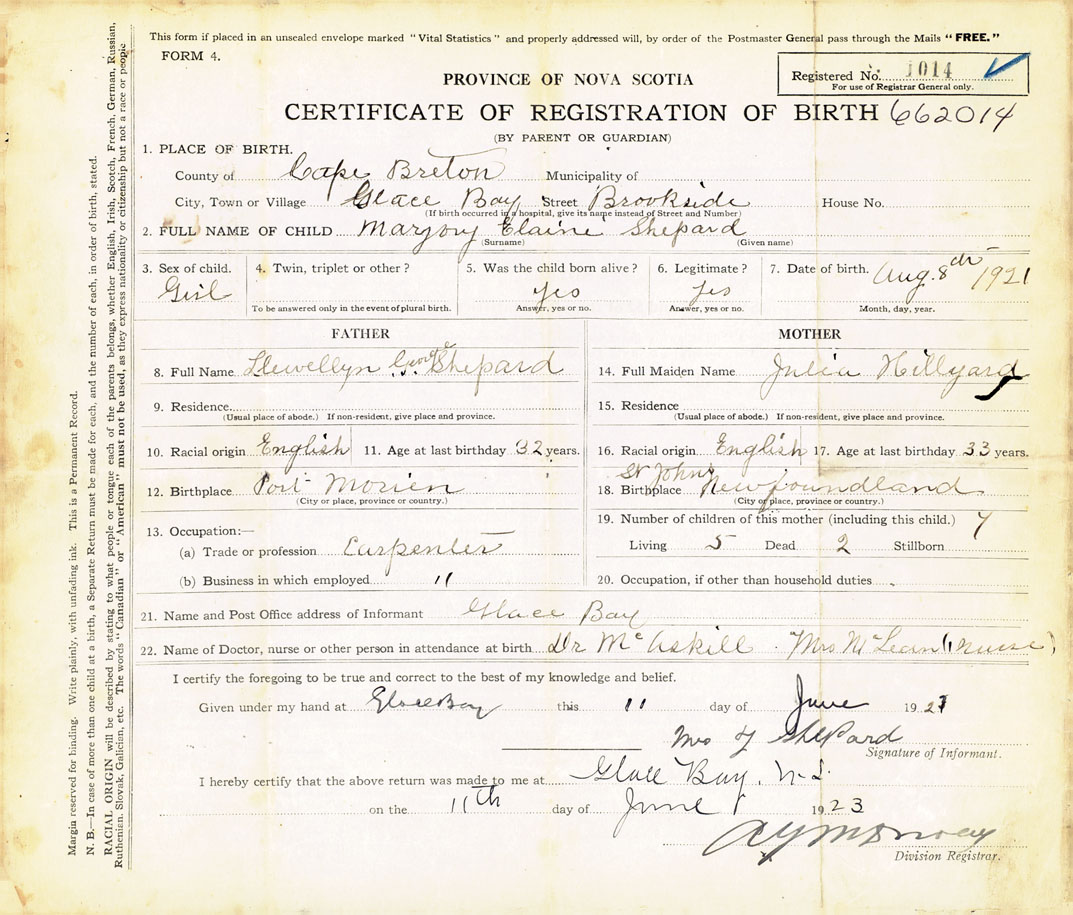 This form if placed in an unsealed envelope marked "Vital Statistics" and properly addressed will, by order of the Postmaster General pass through the Mails "FREE."
FORM 4.
Registered No. 1014
For use of Registrar General only.
PROVINCE OF NOVA SCOTIA
CERTIFICATE OF REGISTRATION OF BIRTH 662014
(BY PARENT OR GUARDIAN)
1. PLACE OF BIRTH.
County of Cape Breton Municipality of
City, Town or Village Glace Bay Street Brookside House No.
(If birth occurred in a hospital, give its name instead of Street and Number)
2. FULL NAME OF CHILD Marjory Elaine Shepard
(Surname) (Given name)
3. Sex of child. 4. Twin, triplet or other? 5. Was the child born alive? 6. Legitimate? 7. Date of birth. Aug. 8th 1921
Girl yes yes
To be answered only in the event of plural birth. Answer, yes or no. Answer, yes or no. Month, day, year.
FATHER
8. Full Name Llewellyn George Shepard
9. Residence
(Usual place of abode.) If non-resident, give place and province.
10. Racial origin English 11. Age at last birthday 32 years.
12. Birthplace Port Morien
(City or place, province or country.)
13. Occupation:—
(a) Trade or profession Carpenter
(b) Business in which employed "
MOTHER
14. Full Maiden Name Julia Hillyard
15. Residence
(Usual place of abode.) If non-resident, give place and province.
16. Racial origin English 17. Age at last birthday 33 years.
St Johns
18. Birthplace Newfoundland
(City or place, province or country.)
19. Number of children of this mother (including this child.) 7
Living 5 Dead 2 Stillborn
20. Occupation, if other than household duties
21. Name and Post Office address of Informant Glace Bay
22. Name of Doctor, nurse or other person in attendance at birth Dr McAskill Mrs McLean (nurse)
I certify the foregoing to be true and correct to the best of my knowledge and belief.
Given under my hand at Glace Bay this 11 day of June 1923
Mrs Shepard
Signature of Informant.
I hereby certify that the above return was made to me at Glace Bay, N.S.
on the 11th day of June 1923
Division Registrar.
Margin reserved for binding. Write plainly, with unfading ink. This is a Permanent Record.
N. B.—In case of more than one child at a birth, a Separate Return must be made for each, and the number of each, in order of birth, stated.
RACIAL ORIGIN will be described by stating to what people or tongue each of the parents belongs, whether English, Irish, Scotch, French, German, Russian,
Ruthenian, Slovak, Galician, etc. The words "Canadian" or "American" must not be used, as they express nationality or citizenship but not a race or people